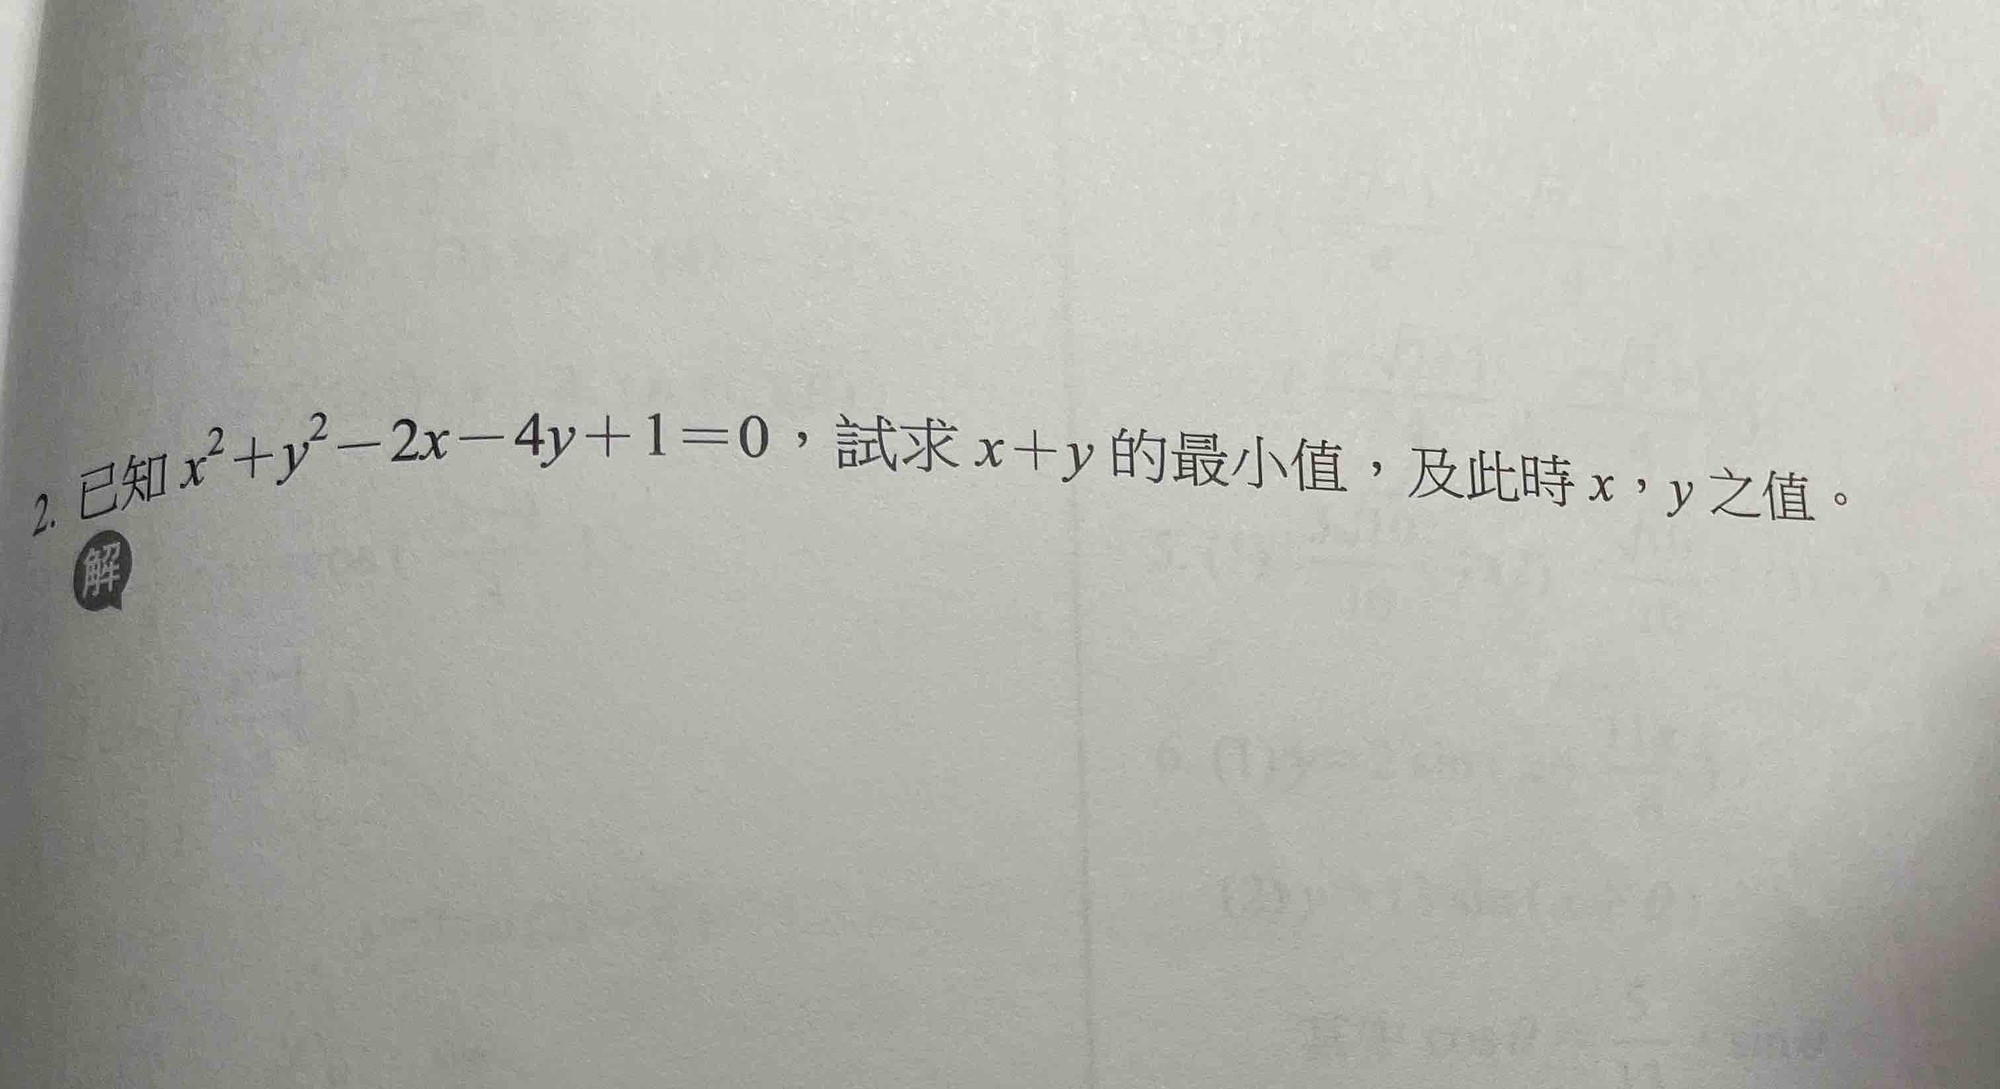 2. 已知 x²+y²−2x−4y+1=0，試求 x+y 的最小值，及此時 x，y 之值。
解